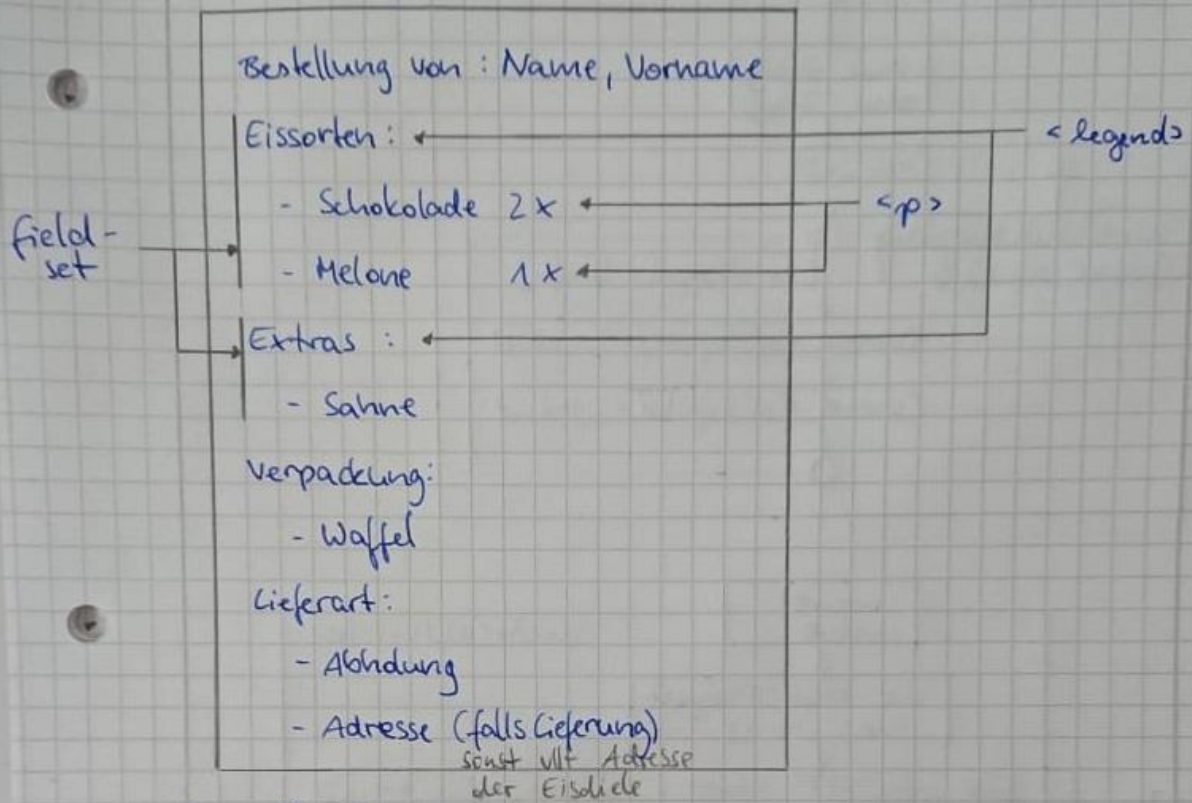 Bestellung von : Name, Vorname
Eissorten :
<legend>
- Schokolade 2x
<p>
field-
set
- Melone 1x
Extras :
- Sahne
Verpackung:
- Waffel
Lieferart:
- Abholung
- Adresse (falls Lieferung)
sonst vllt Adresse
der Eisdiele